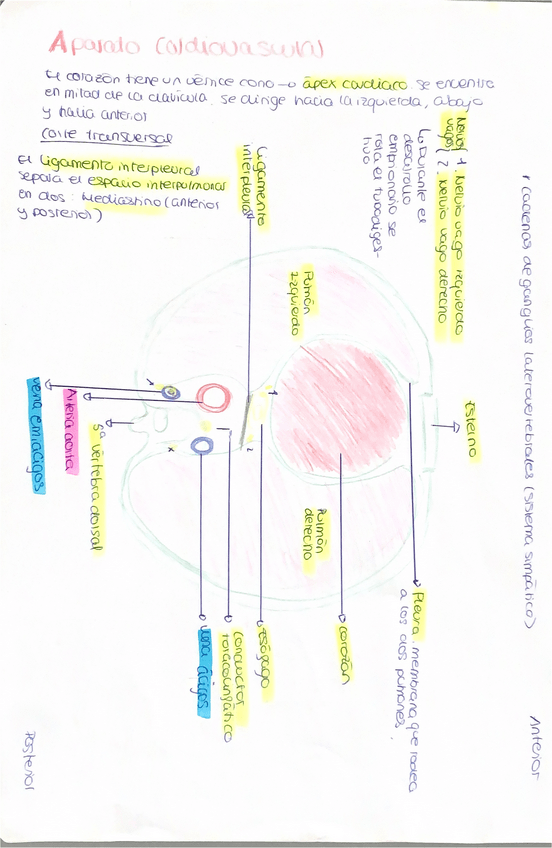 Aparato Cardiovascular
El corazón tiene un vértice cono → ápex cardiaco. Se encuentra
en mitad de la clavícula. Se dirige hacia la izquierda, abajo
y hacia anterior
Corte transversal
El Ligamento interpleural
separa el espacio interpulmonar
en dos: Mediastino (anterior
y posterior)
* cadenas de ganglios laterovertebrales (sistema simpático)
Anterior
Nervios 1. Nervio vago izquierdo
vagos 2. Nervio vago derecho
↳ Durante el
desarrollo
embrionario se
rota el tubo diges-
tivo
Ligamento
interpleural
Pulmón
izquierdo
Esterno
Pulmón
derecho
Pleura. membrana que rodea
a los dos pulmones.
corazón
esófago
conductos
toracolinfático
vena ácigos
5ª vertebra dorsal
Arteria aorta
vena emiacigos
1
2
x
Posterior